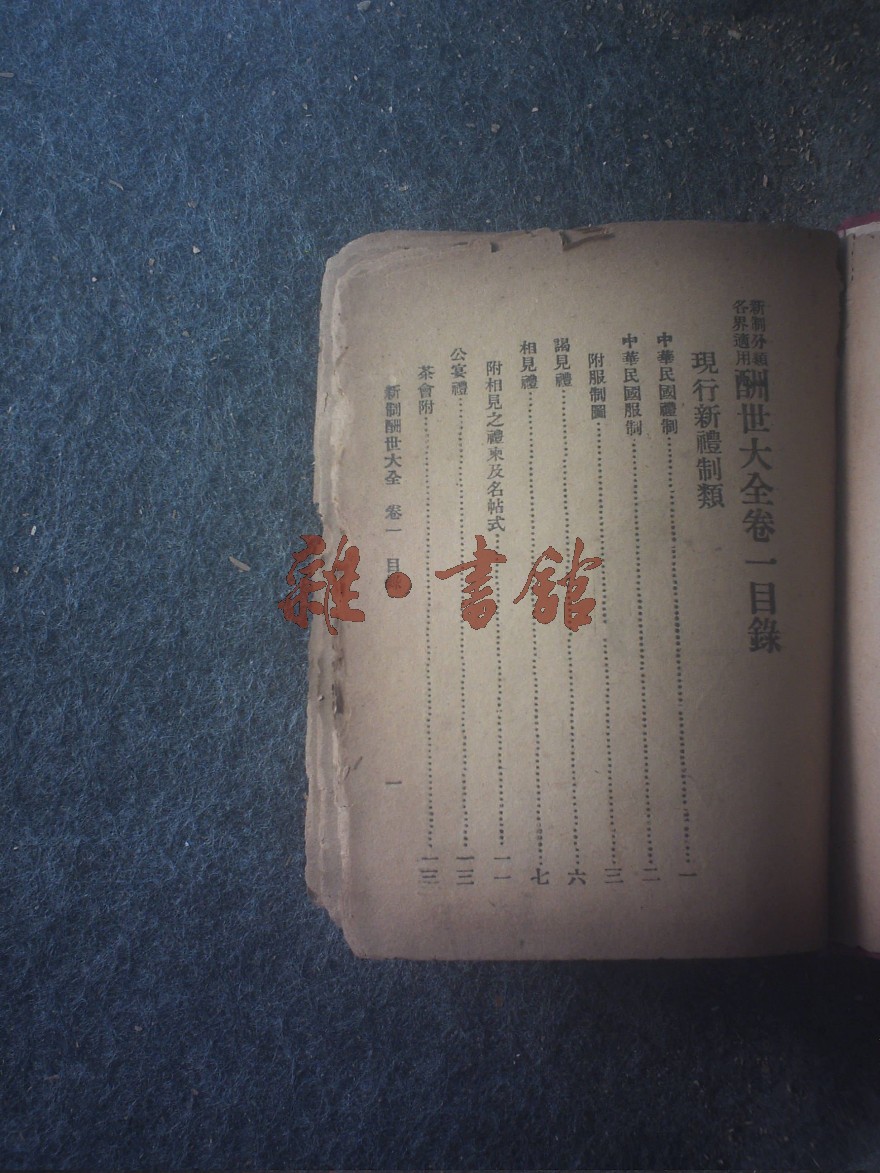 新制分類
各界適用
酬世大全卷一目錄
現行新禮制類
中華民國禮制……一
中華民國服制……二
附服制圖……三
謁見禮……六
相見禮……七
附相見之禮柬及名帖式……一一
公宴禮……一三
茶會附……一三
新制酬世大全 卷一 目錄 一
雜·書館